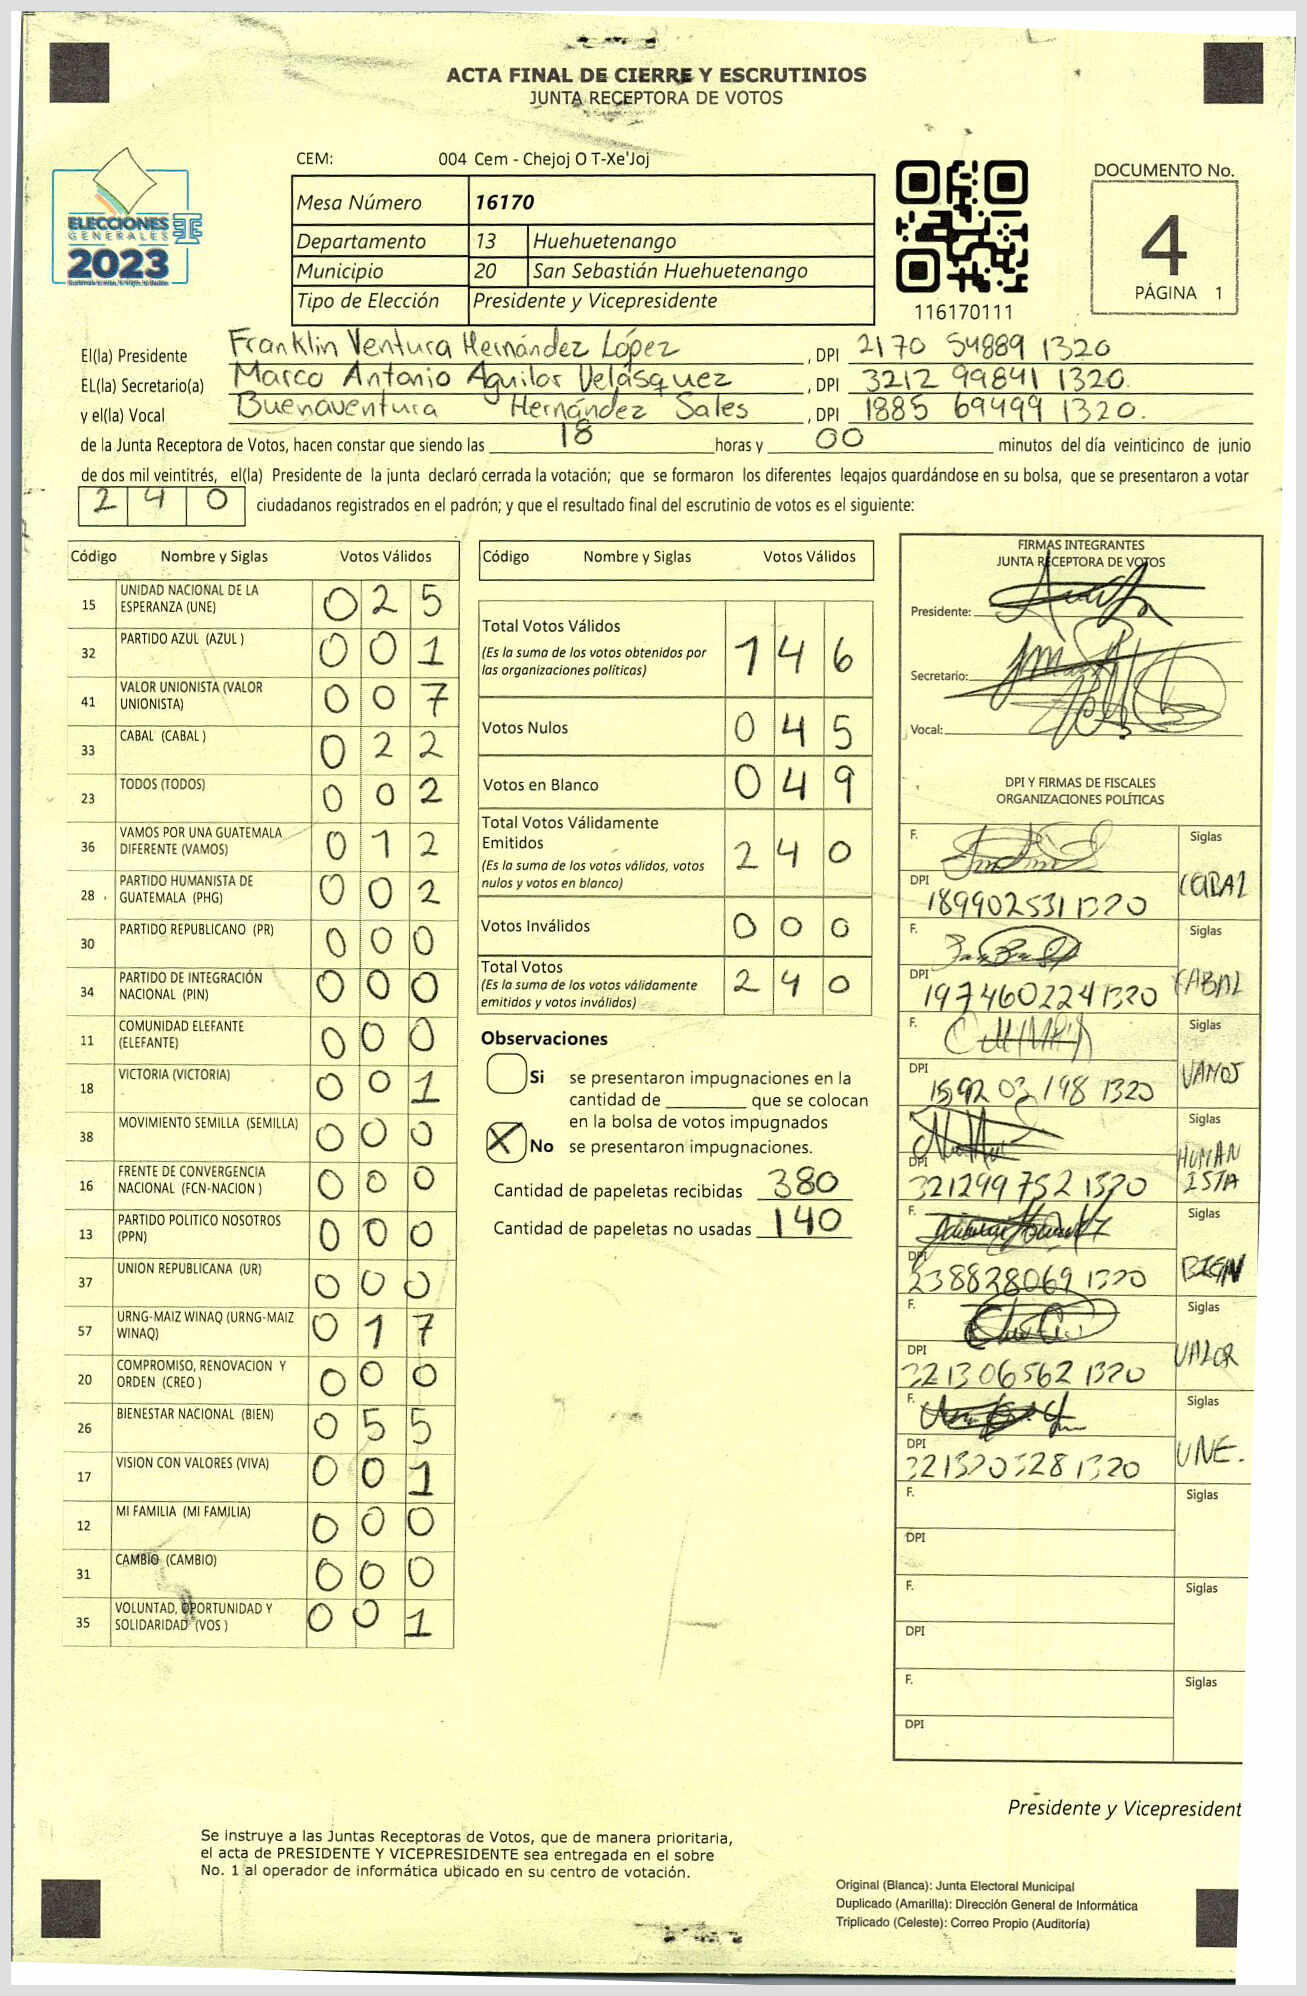 ACTA FINAL DE CIERRE Y ESCRUTINIOS
JUNTA RECEPTORA DE VOTOS
CEM: 004 Cem - Chejoj O T-Xe'Joj
ELECCIONES
GENERALES
2023
Mesa Número 16170
Departamento 13 Huehuetenango
Municipio 20 San Sebastián Huehuetenango
Tipo de Elección Presidente y Vicepresidente
116170111
DOCUMENTO No.
4
PÁGINA 1
El(la) Presidente Franklin Ventura Hernández López , DPI 2170 54889 1320
EL(la) Secretario(a) Marco Antonio Aguilar Velásquez , DPI 3212 99841 1320.
y el(la) Vocal Buenaventura Hernández Sales , DPI 1885 69499 1320.
de la Junta Receptora de Votos, hacen constar que siendo las 18 horas y 00 minutos del día veinticinco de junio
de dos mil veintitrés, el(la) Presidente de la junta declaró cerrada la votación; que se formaron los diferentes legajos guardándose en su bolsa, que se presentaron a votar
240 ciudadanos registrados en el padrón; y que el resultado final del escrutinio de votos es el siguiente:
Código Nombre y Siglas Votos Válidos
15 UNIDAD NACIONAL DE LA ESPERANZA (UNE) 025
32 PARTIDO AZUL (AZUL ) 001
41 VALOR UNIONISTA (VALOR UNIONISTA) 007
33 CABAL (CABAL ) 022
23 TODOS (TODOS) 002
36 VAMOS POR UNA GUATEMALA DIFERENTE (VAMOS) 012
28 PARTIDO HUMANISTA DE GUATEMALA (PHG) 002
30 PARTIDO REPUBLICANO (PR) 000
34 PARTIDO DE INTEGRACIÓN NACIONAL (PIN) 000
11 COMUNIDAD ELEFANTE (ELEFANTE) 000
18 VICTORIA (VICTORIA) 001
38 MOVIMIENTO SEMILLA (SEMILLA) 000
16 FRENTE DE CONVERGENCIA NACIONAL (FCN-NACION ) 000
13 PARTIDO POLITICO NOSOTROS (PPN) 000
37 UNION REPUBLICANA (UR) 000
57 URNG-MAIZ WINAQ (URNG-MAIZ WINAQ) 017
20 COMPROMISO, RENOVACION Y ORDEN (CREO ) 000
26 BIENESTAR NACIONAL (BIEN) 055
17 VISION CON VALORES (VIVA) 001
12 MI FAMILIA (MI FAMILIA) 000
31 CAMBIO (CAMBIO) 000
35 VOLUNTAD, OPORTUNIDAD Y SOLIDARIDAD (VOS ) 001
Código Nombre y Siglas Votos Válidos
Total Votos Válidos 146
(Es la suma de los votos obtenidos por
las organizaciones políticas)
Votos Nulos 045
Votos en Blanco 049
Total Votos Válidamente
Emitidos 240
(Es la suma de los votos válidos, votos
nulos y votos en blanco)
Votos Inválidos 000
Total Votos 240
(Es la suma de los votos válidamente
emitidos y votos inválidos)
Observaciones
Si se presentaron impugnaciones en la
cantidad de ________ que se colocan
en la bolsa de votos impugnados
X No se presentaron impugnaciones.
Cantidad de papeletas recibidas 380
Cantidad de papeletas no usadas 140
FIRMAS INTEGRANTES
JUNTA RECEPTORA DE VOTOS
Presidente:
Secretario:
Vocal:
DPI Y FIRMAS DE FISCALES
ORGANIZACIONES POLÍTICAS
F. Siglas
DPI 189902531 1320 CABAL
F. Siglas
DPI 197460224 1320 CABAL
F. Siglas
DPI 1592 03 198 1320 VAMOS
F. Siglas
DPI 321299752 1320 HUMANISTA
F. Siglas
DPI 238828069 1320 BIEN
F. Siglas
DPI 321306562 1320 VALOR
F. Siglas
DPI 321320328 1320 UNE.
F. Siglas
DPI
F. Siglas
DPI
F. Siglas
DPI
Presidente y Vicepresident
Se instruye a las Juntas Receptoras de Votos, que de manera prioritaria,
el acta de PRESIDENTE Y VICEPRESIDENTE sea entregada en el sobre
No. 1 al operador de informática ubicado en su centro de votación.
Original (Blanca): Junta Electoral Municipal
Duplicado (Amarilla): Dirección General de Informática
Triplicado (Celeste): Correo Propio (Auditoría)